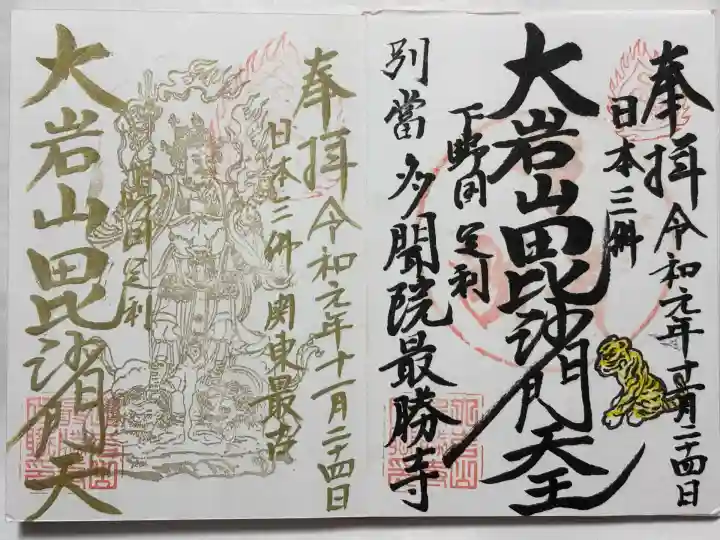 奉拝 令和元年十一月二十四日
日本三佛
大岩山毘沙門天王
下野国 足利
別當多聞院最勝寺
奉拝 令和元年十一月二十四日
日本三佛 関東最古
下野国 足利
大岩山毘沙門天